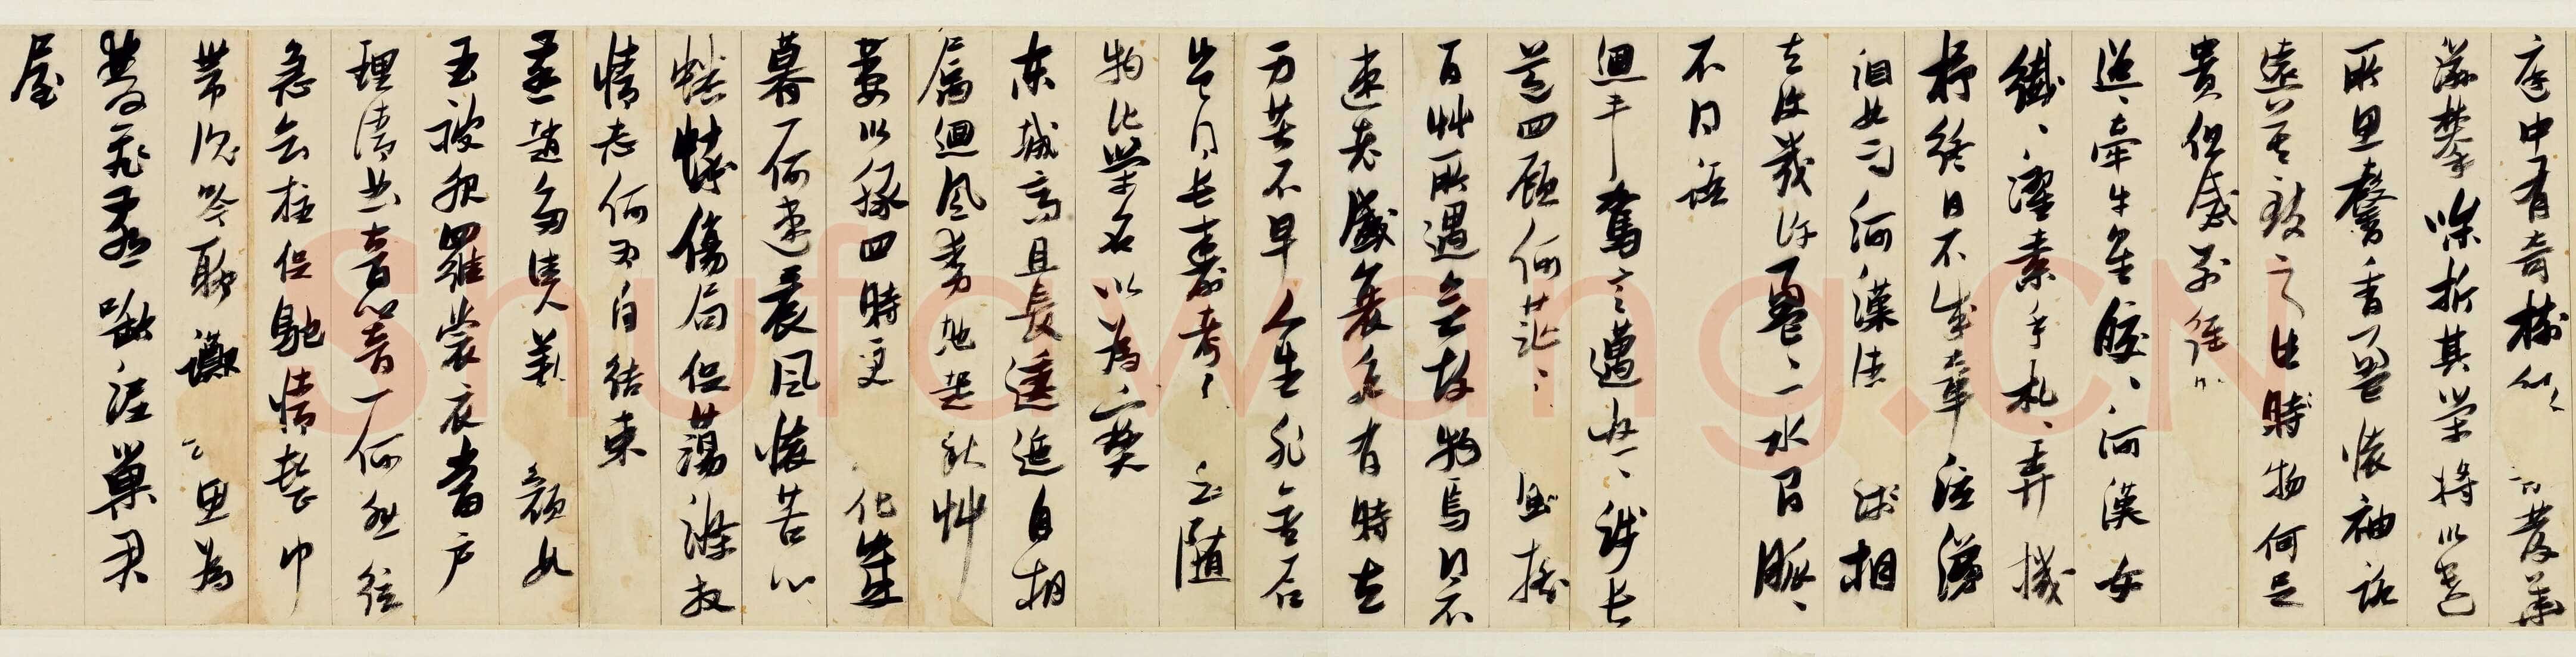 庭中有奇樹綠發華
滋攀條折其榮將以遺
所思馨香盈懷袖路
遠莫致之此時物何足
貴但感別經
迢〻牽牛星皎〻河漢女
纖〻濯素手札〻弄機
杼終日不成章泣涕
泪如雨河漢清淺相
去復幾許盈〻一水間脈〻
不得語
迴車駕言邁悠〻涉長
道四顧何茫〻風搖
百艸所遇無故物焉得不
速老盛衰各有時立
身苦不早人生非金石
豈得長壽考忽隨
物化榮名以為寶
東城高且長逶迤自相
屬迴風動地起秋艸
萋以綠四時更化歲
暮一何速晨風懷苦心
蟋蟀傷局促蕩滌放
情志何為自結束
燕趙多佳人美顏如
玉被服羅裳衣當戶
理清曲音響一何悲絃
急知柱促馳情整巾
帶沉吟聊躑思為
雙飛燕銜泥巢君
屋
Shufawang.CN